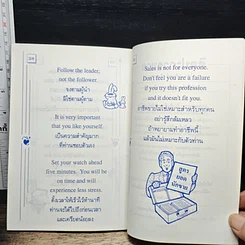 Follow the leader,
not the follower.
จงตามผู้นำ
มิใช่ตามผู้ตาม
It is very important
that you like yourself.
เป็นความสำคัญมาก
ที่ท่านชอบตัวเอง
Set your watch ahead
five minutes. You will be
on time and will
experience less stress.
ตั้งเวลาให้เร็วไว้ห้านาที
ท่านจะได้ไปถึงก่อนเวลา
และเครียดน้อยลง
Sales is not for everyone.
Don't feel you are a failure
if you try this profession
and it doesn't fit you.
อาชีพขายไม่ใช่เหมาะสำหรับทุกคน
อย่ารู้สึกล้มเหลว
ถ้าพยายามทำอาชีพนี้
แล้วมันไม่เหมาะกับท่าน